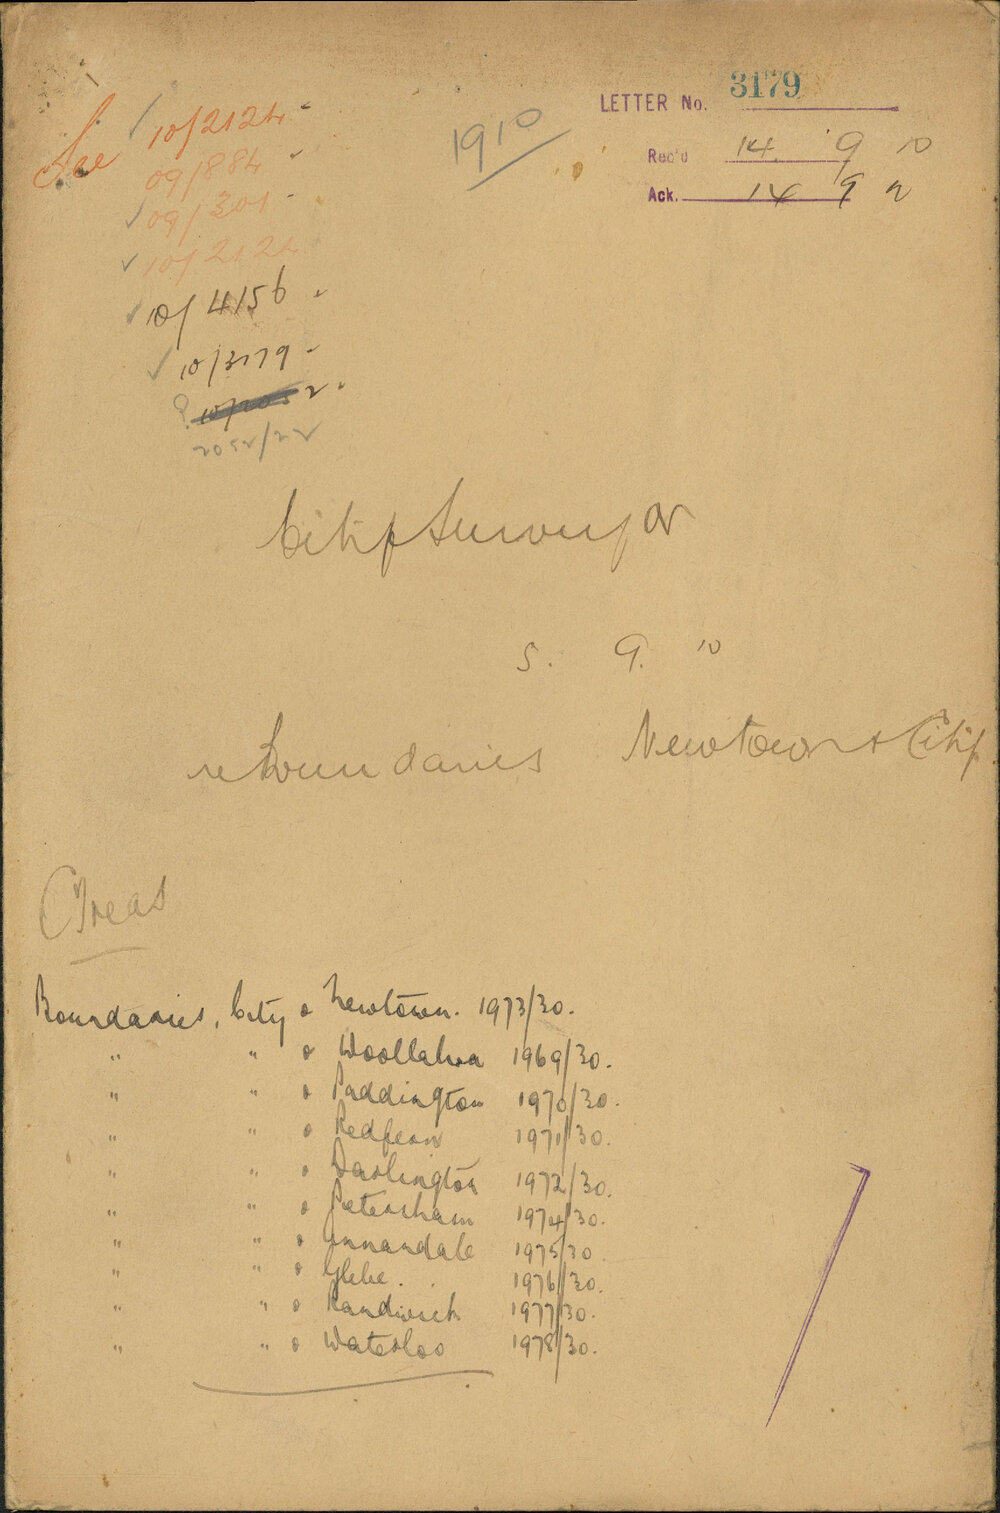 LETTER No. 3179
Rec'd 14 9 10
Ack. 14 9 10
1910
See 10/2124
09/884
09/301
10/2124
10/4156
10/3179
2052/22
City Surveyor
5. 9. 10
re boundaries Newtown & City
Areas
Boundaries, City & Newtown. 1973/30.
" " & Woollahra 1969/30.
" " & Paddington 1970/30.
" " & Redfern 1971/30.
" " & Darlington 1972/30.
" " & Petersham 1974/30.
" " & Annandale 1975/30
" " & Glebe. 1976/30.
" " & Randwick 1977/30.
" " & Waterloo 1978/30.